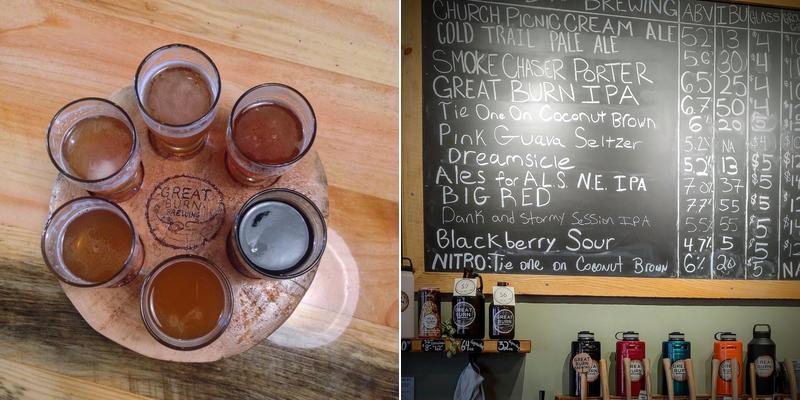 GREAT
BURN
BREWING
BREWING ABV IBU GLASS
CHURCH PICNIC CREAM ALE 5.2 13 4
COLD TRAIL PALE ALE 5% 30 4
SMOKE CHASER PORTER 6.5 25 4
GREAT BURN IPA 6.7 50 4
Tie One On Coconut Brown 6% 20 5
Pink Guava Seltzer 5.2% NA
Dreamsicle 5.2% 13 $5
Ales for A.L.S. N.E. IPA 37 5
BIG RED 55 5
Dank and Stormy Session IPA 55
Blackberry Sour 4.7% 5
NITRO: Tie one on Coconut Brown 6% 20 5
GREAT
BURN
GREAT
BURN
64
32